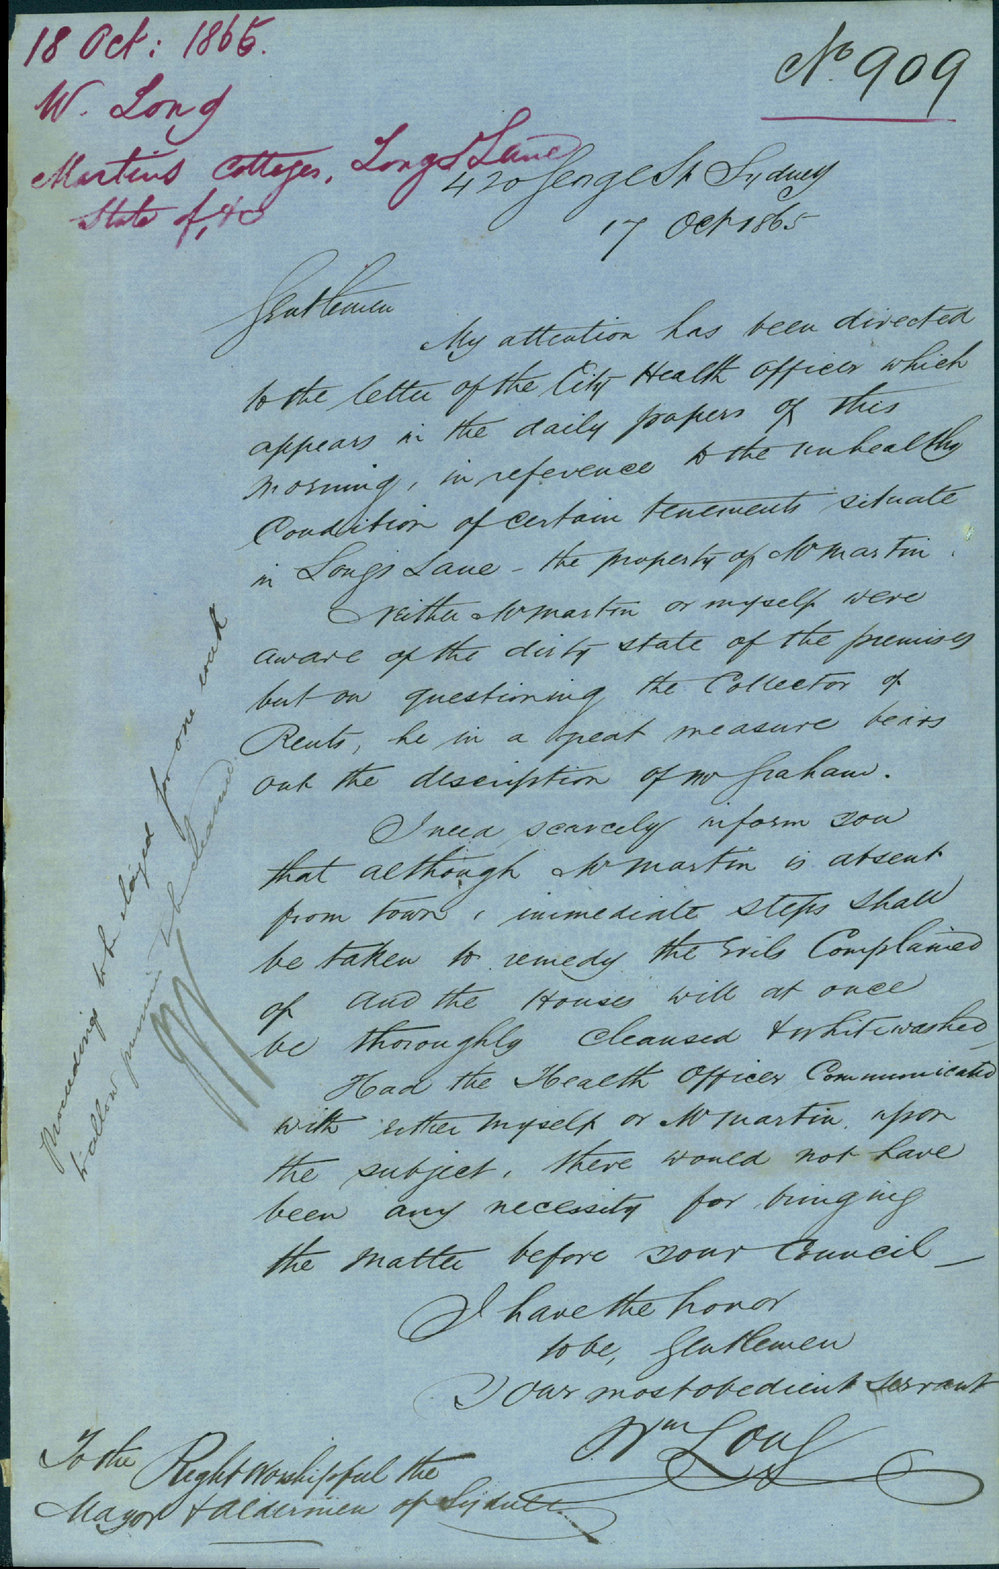 18 Oct: 1865.
No 909
W. Long
Martins Cottages, Longs Lane
State of, &c
420 George St Sydney
17 Oct 1865
Gentlemen
My attention has been directed
to the letter of the City Health Officer which
appears in the daily papers of this
morning, in reference to the unhealthy
Condition of certain tenements situate
in Longs Lane - the property of Mr Martin.
Neither Mr Martin or myself were
aware of the dirty state of the premises
but on questioning the Collector of
Rents, he in a great measure bears
out the description of Mr Graham.
I need scarcely inform you
that although Mr Martin is absent
from town, immediate steps shall
be taken to remedy the Evils Complained
of and the Houses will at once
be thoroughly cleansed & whitewashed
Had the Health Officer Communicated
with either myself or Mr Martin upon
the subject, there would not have
been any necessity for bringing
the matter before your Council
I have the honor
to be, Gentlemen
Your most obedient servant
Wm Long
To the Right Worshipful the
Mayor & Aldermen of Sydney
proceedings to be stayed for one week
to allow premises to be cleaned